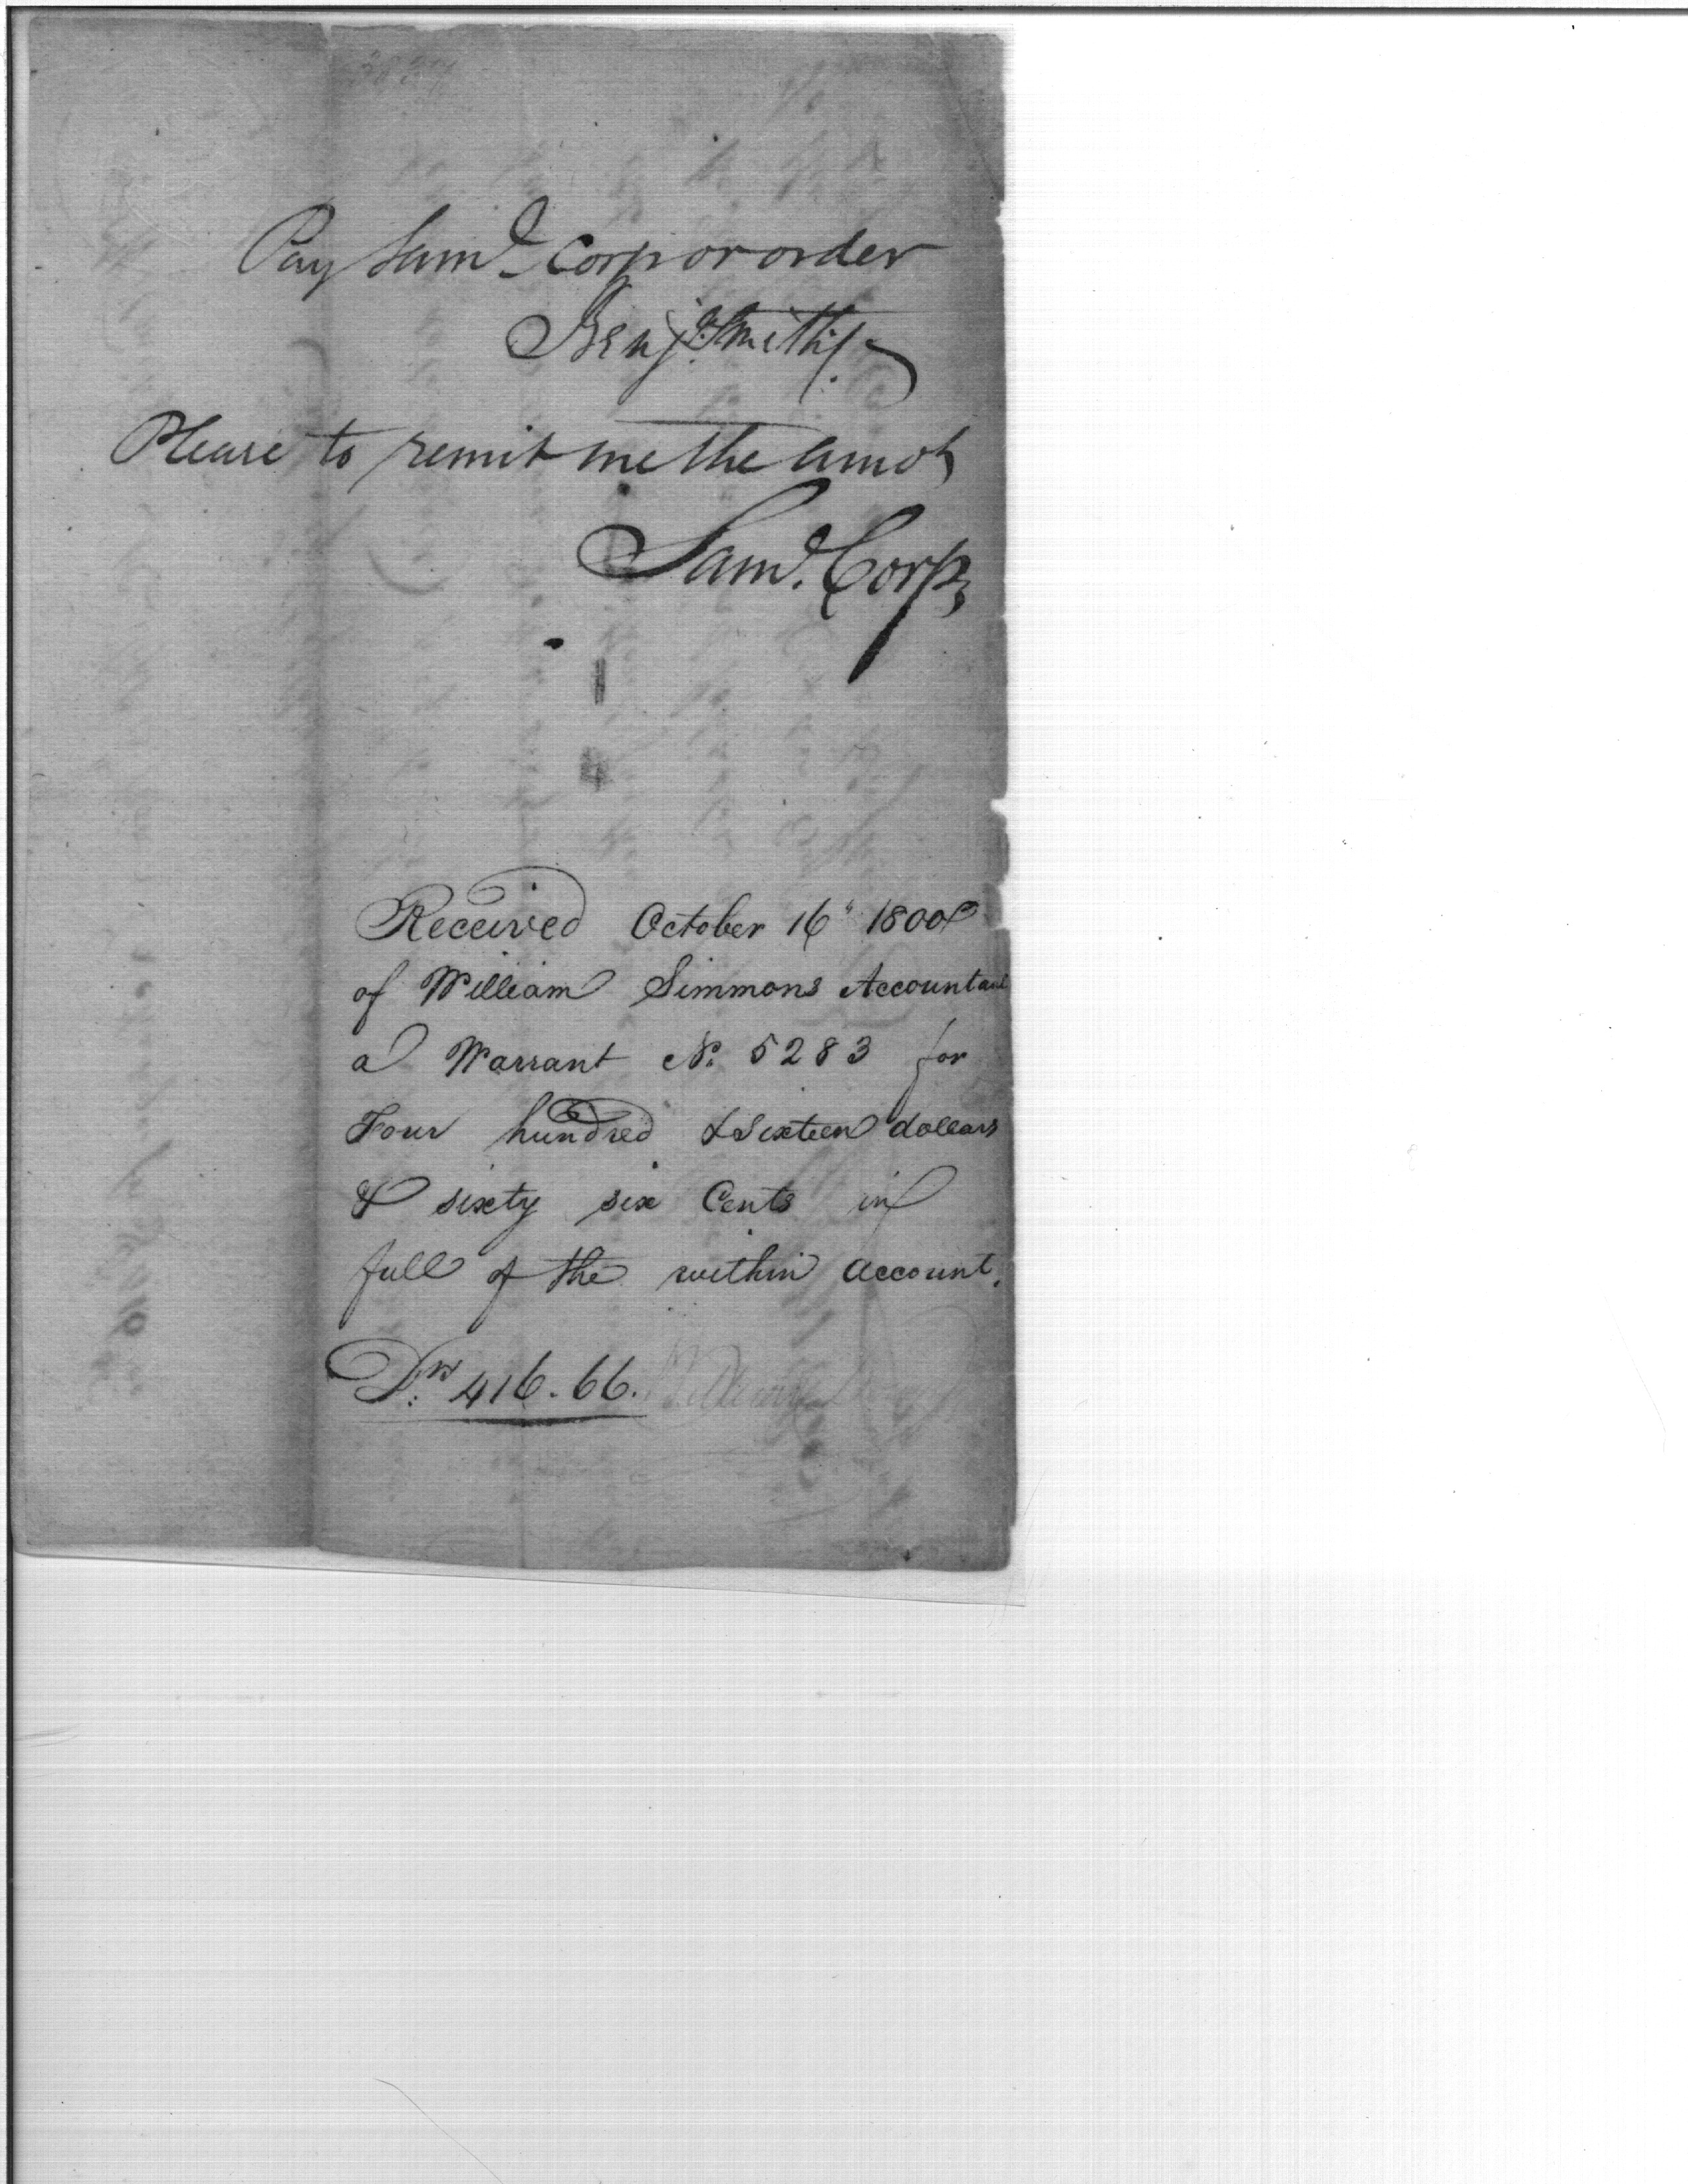 Pay Saml. Corp or order
Benj. Smith
Please to remit me the amot
Saml. Corp
Received October 16" 1800
of William Simmons Accountant
a Warrant No. 5283 for
Four hundred & Sixteen dollars
& sixty six Cents in
full of the within account.
Drs. 416.66.